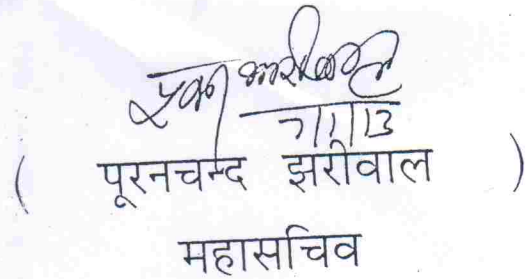 7/1/13
( पूरनचन्द झरीवाल )
महासचिव